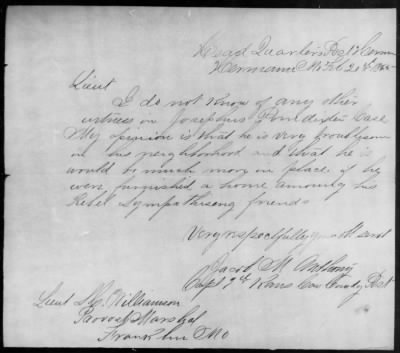 Head Quarters Post Herman
Hermann Mo Feb 20th 1865
Lieut
I do not know of any other
witness in Josephus Poindexter Case
My opinion is that he is very troublesom
in his neighborhood and that he is
would be much mory in place if he
were furnished a home amoung his
Rebel Sympathising friends
Very respectfully your Ob servt
Jacob M Anthony
Capt 7th Kans Cav Comdg Post
Lieut S. C. Williamson
Provost Marshal
Franklin Mo